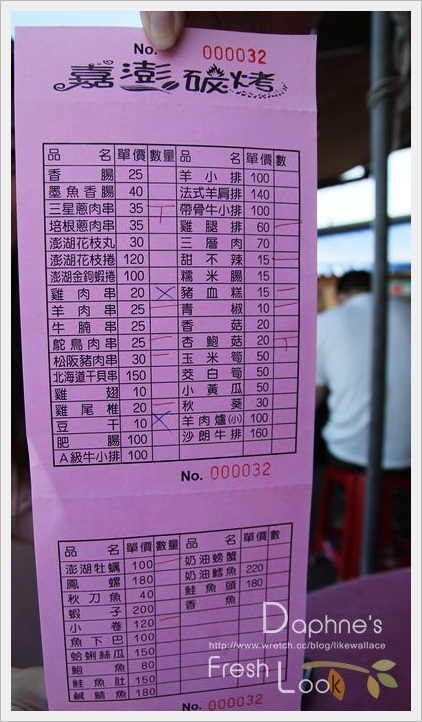 No. 000032
嘉澎碳烤
品名 單價 數量 品名 單價 數
香腸 25 羊小排 100
墨魚香腸 40 法式羊肩排 140
三星蔥肉串 35 帶骨牛小排 100
培根蔥肉串 35 雞腿排 60
澎湖花枝丸 30 三層肉 70
澎湖花枝捲 120 甜不辣 15
澎湖金鉤蝦捲 100 糯米腸 15
雞肉串 20 豬血糕 15
羊肉串 25 青椒 10
牛腩串 25 香菇 20
鴕鳥肉串 25 杏鮑菇 20
松阪豬肉串 30 玉米筍 50
北海道干貝串 150 茭白筍 50
雞翅 10 小黃瓜 50
雞尾椎 20 秋葵 30
豆干 10 羊肉爐(小) 100
肥腸 100 沙朗牛排 160
A級牛小排 100
No. 000032
品名 單價 數量 品名 單價 數量
澎湖牡蠣 100 奶油螃蟹
鳳螺 180 奶油鱈魚 220
秋刀魚 40 鮭魚頭 180
蝦子 200 香魚
小卷 120
魚下巴 100
蛤蜊絲瓜 150
鮑魚 80
鮭魚肚 150
鹹鯖魚 180
No. 000032
Daphne's
http://www.wretch.cc/blog/likewallace
Fresh Look